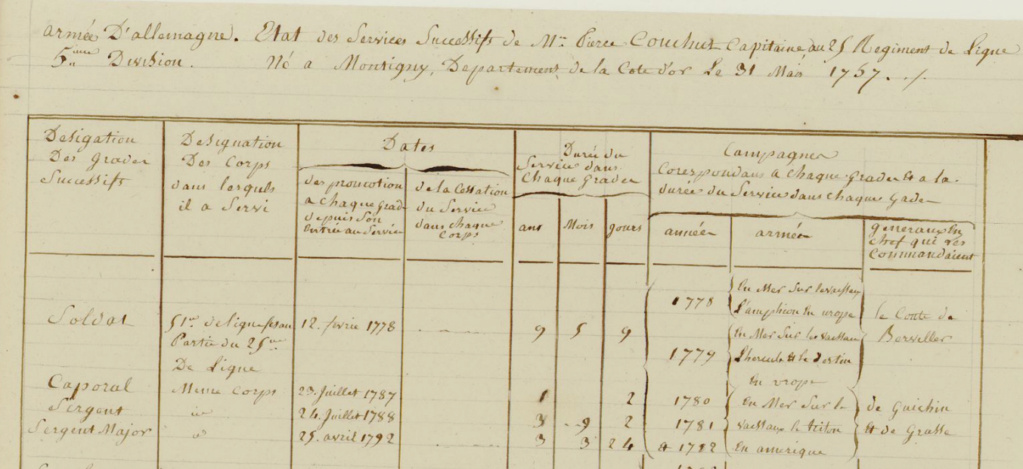 armée D'allemagne. Etat des Services Successifs de Mr. Pierre Couchut Capitaine au 25 Regiment de Ligne
5.ieme Division. Né a Montigny, Departement de la Cote d'or Le 31 Mai 1757.
Desigation
Des Grades
Successifs
Designation
Des Corps
dans lesquels
il a Servi
Dates
des promotion
a Chaque Grade
depuis Son
Entrée au Service
de la Cessation
du Service
dans chaque
Corps
Durée du
Service dans
Chaque Grade
ans
Mois
Jours
Campagnes
Corespondans a Chaque Grade & a la
durée du Service dans Chaque Gade
année
armée
generaux En
chef qui les
Commandaient
Soldat
51me de ligne
Partie du 25me
De Ligne
12. fevrie 1778
9 5 9
1778
En Mer Sur le vaisseau
L'amphion En urope
1779
En Mer Sur les vaisseau
L'hercule & le
En urope
le Conte de
Caporal
Meme Corps
23. Juillet 1787
1 2
1780
En Mer Sur le
de Guichin
Sergent
id
24. Juillet 1788
3 9 2
1781
vaisseaux le triton
& de Grasse
Sergent Major
id
25. avril 1792
3 3 24
& 1782
En amerique